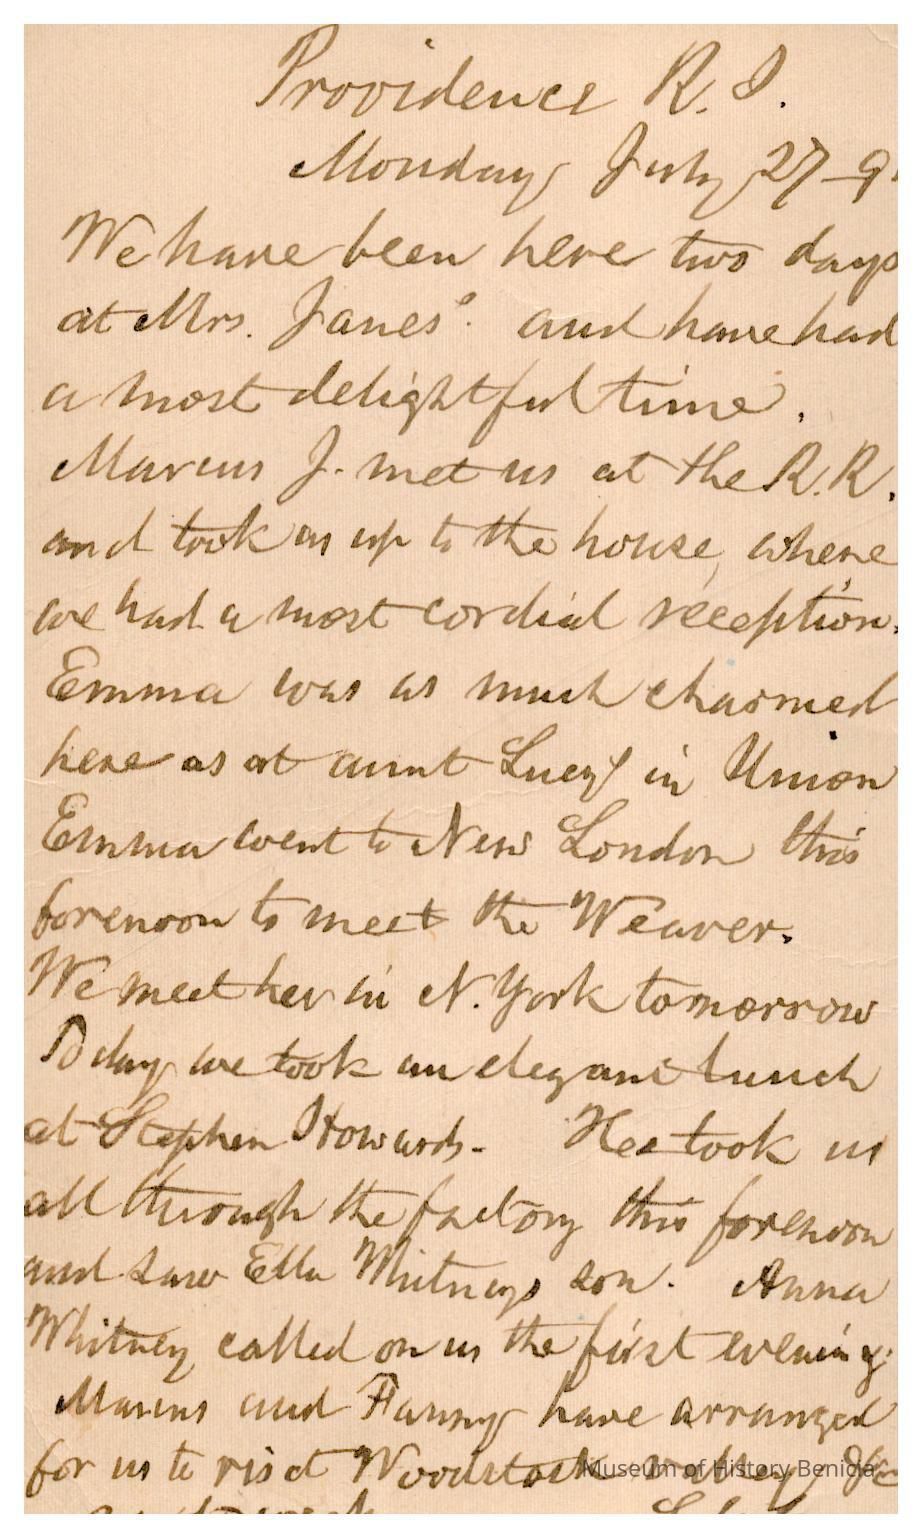 Providence R. I.
Monday July 27 - 9
We have been here two days
at Mrs. Janes'. and have had
a most delightful time.
Marcus J. met us at the R. R.
and took us up to the house, where
we had a most cordial reception.
Emma was as much charmed
here as at aunt Lucy's in Union
Emma went to New London this
forenoon to meet the Weaver.
We meet her in N. York tomorrow
To day we took an elegant lunch
at Stephen Howards. He took us
all through the factory this forenoon
and saw Ella Whitneys son. Anna
Whitney called on us the first evening.
Marcus and Fanny have arranged
for us to visit Woodstock
Museum of History Benicia